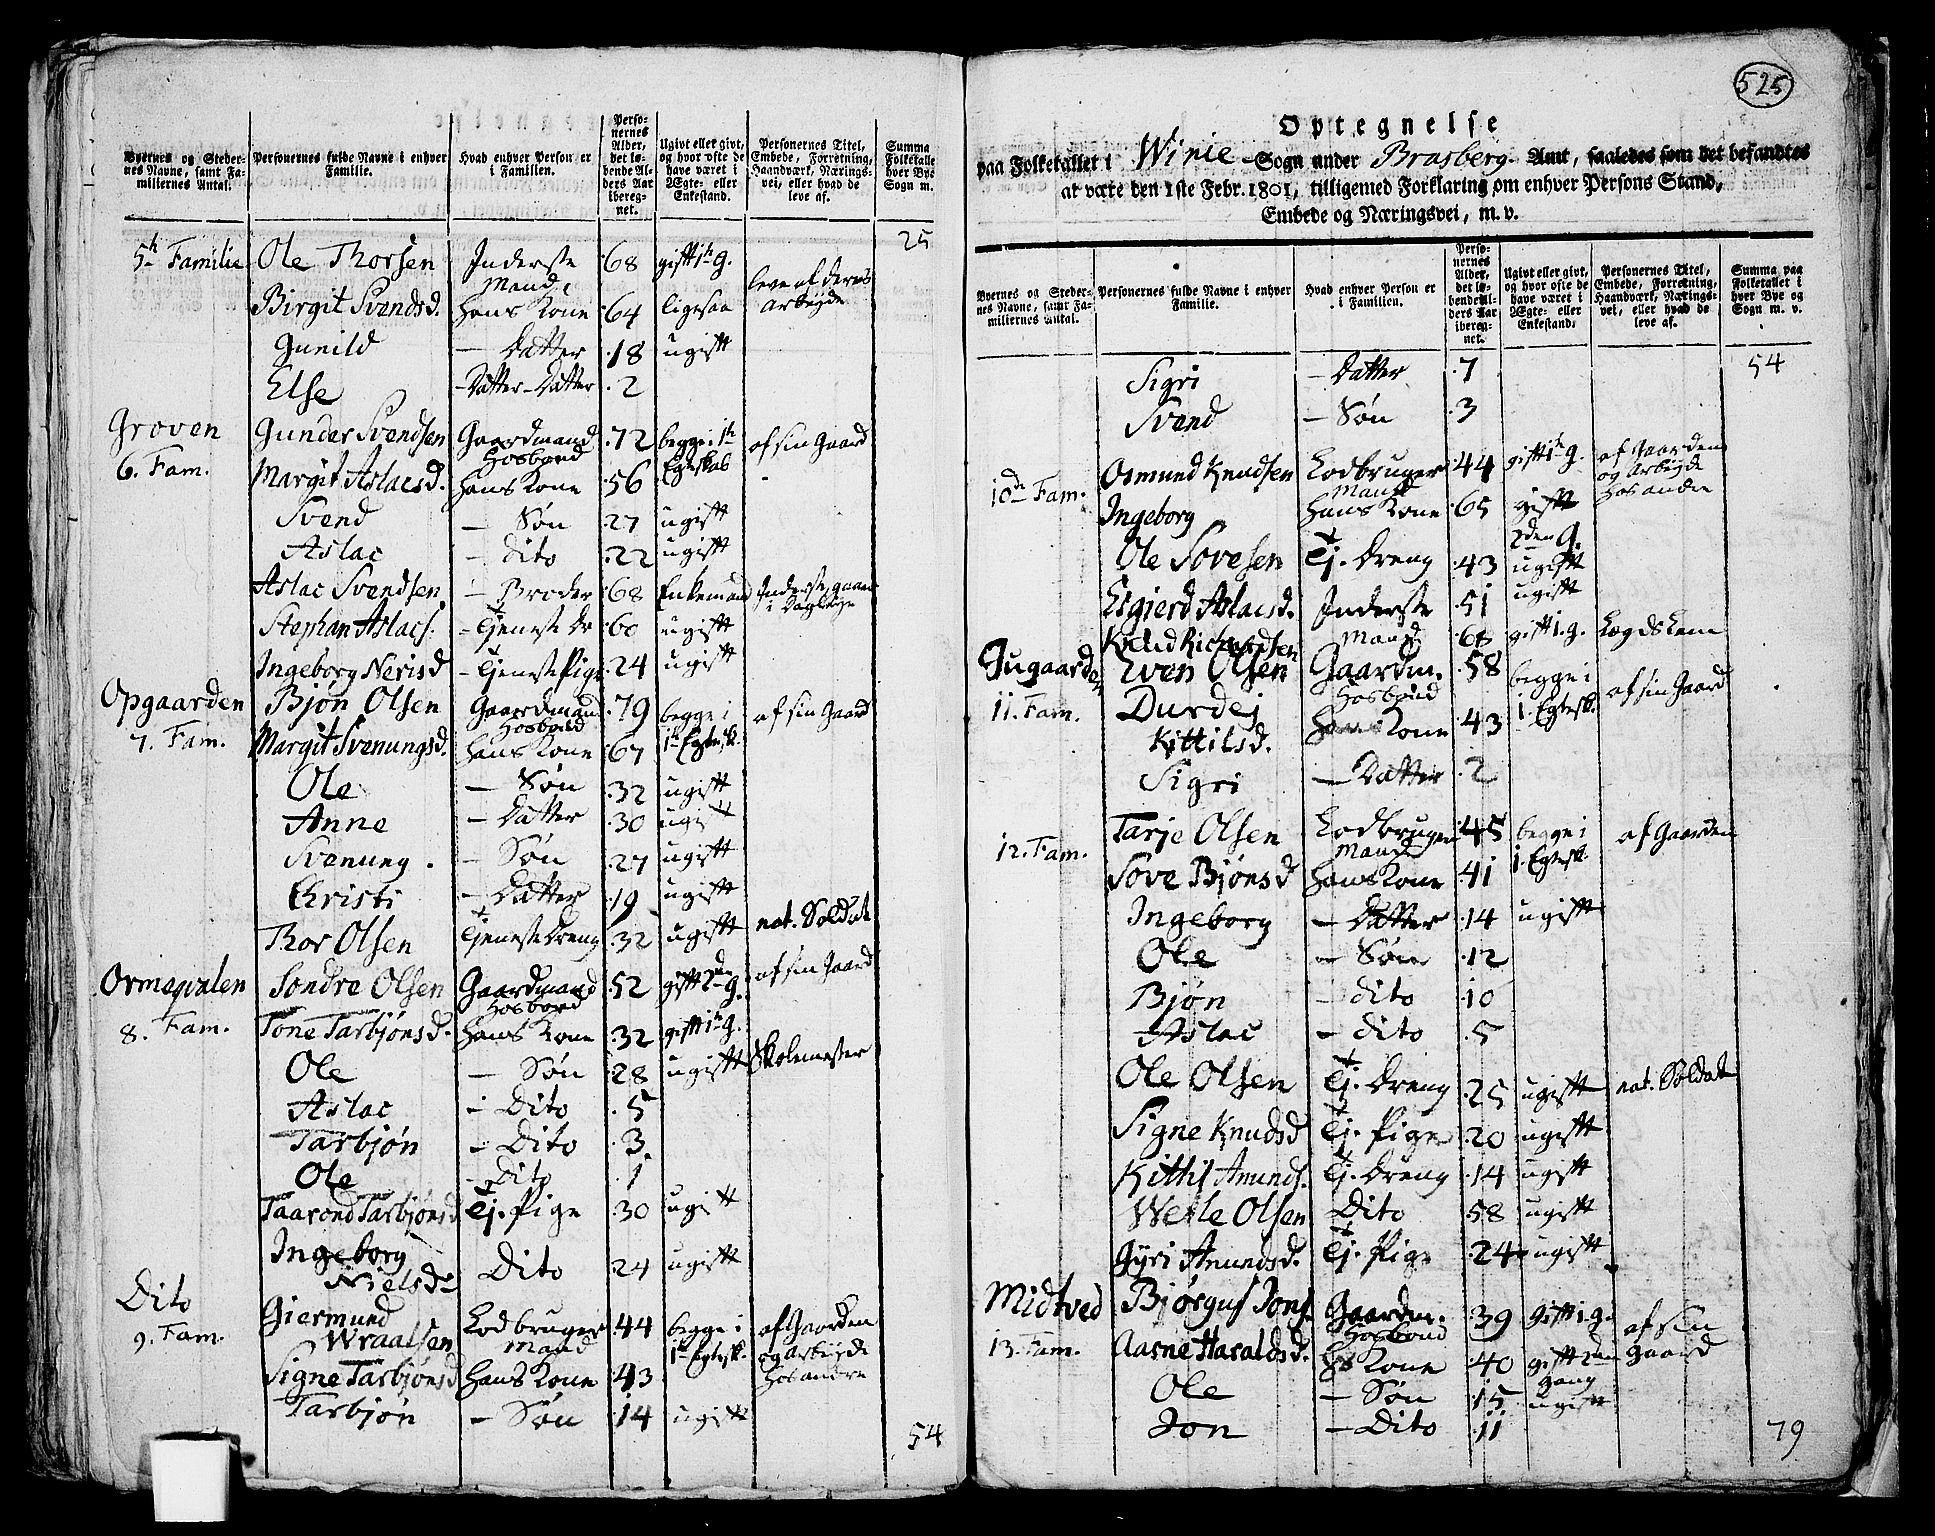 Byernes og Steder-
nes Navne, samt Fa-
miliernes Antal.
Personernes fulde Navne i enhver
Familie.
Hvad enhver Person er
i Familien.
Perso-
nernes
Alder,
det lø-
bende Al-
ders Aar
iberegnet.
Ugivt eller givt,
og hvor ofte de
have været i
Ægte- eller
Enkestand.
Personernes Titel,
Embede, Forretning,
Haandværk, Nærings-
vei, eller hvad de
leve af.
Summa
Folketallet
hver Bye og
Sogn m.
25
5h Familie Ole Thorsen Inderste Mand, 68 gift 1h g. leve af deres
Birgit Svendsd. Hans Kone 64 ligesaa arbeyde
Gunild — Datter 18 ugift
Else — Datter-Datter 2
Groven Gunder Svendsen Gaardmand Hosbond 72 begge i 1h af sin Gaard
6. Fam. Margit Aslacsd. Hans Kone 56 Egteskab
Svend — Søn 27 ugift
Aslac — Dito 22 ugift
Aslac Svendsen — Broder 68 Enkemand Inderste, gaaer i Dagleye
Stephan Aslacs. — Tjeneste Dr 60 ugift
Ingeborg Nerisd — Tjeneste Pige 24 ugift
Opgaarden Bjøn Olsen Gaardmand Hosbond 79 begge i af sin Gaard
7. Fam. Margit Svenungsd. Hans Kone 67 1h Egtesk.
Ole — Søn 32 ugift
Anne — Datter 30 ugift
Svenung — Søn 27 ugift
Christi — Datter 19 ugift
Thor Olsen Tjeneste Dreng 32 ugift nat. Soldat
Ormeqvalen Sondre Olsen Gaardmand Hosbond 52 gift 2den g. af sin Gaard
8. Fam. Tone Tarbjønsd. Hans Kone 32 gift 1h g.
Ole — Søn 28 ugift Skolemester
Aslac — Dito 5
Tarbjøn — Dito 3
Ole — Dito 1
Taarond Tarbjønsd Tj. Pige 30 ugift
Ingeborg Nielsd. Dito 24 ugift
Dito Giermund Wraalsen Lodbruger Mand 44 begge i af Gaarden
9. Fam. 1h Egtesk. og Arbeyde
Signe Tarbjønsd Hans Kone 43 hos andre
Tarbjøn — Søn 14 ugift
54
525
Optegnelse
paa Folketallet i Winie Sogn under Brasberg Amt, saaledes som det befandtes
at være den 1ste Febr. 1801, tilligemed Forklaring om enhver Persons Stand,
Embede og Næringsvei, m. v.
Byernes og Steder-
nes Navne, samt Fa-
miliernes Antal.
Personernes fulde Navne i enhver
Familie.
Hvad enhver Person er
i Familien.
Perso-
nernes
Alder,
det lø-
bende Al-
ders Aar
iberegnet.
Ugivt eller givt,
og hvor ofte de
have været i
Ægte- eller
Enkestand.
Personernes Titel,
Embede, Forretning,
Haandværk, Nærings-
vei, eller hvad de
leve af.
Summa paa
Folketallet i
hver Bye og
Sogn m. v.
54
Sigri — Datter 7
Svend — Søn 3
10de Fam. Osmund Knudsen Lodbruger Mand 44 gift 1h g. af Gaarden og Arbeyde
Ingeborg Hans Kone 65 gift 2den G. hos andre
Ole Sovesen Tj. Dreng 43 ugift
Eigierd Aslacsd. Inderste 51 ugift
Knud Mand gift 1. g. Lægds Lem
Jugaarden Even Olsen Gaardm. Hosbond 58 begge i af sin Gaard
11. Fam. Durdej Kittilsd. Hans Kone 43 1. Egtesk.
Sigri — Datter 2
12. Fam. Tarje Olsen Lodbruger Mand 45 begge i af Gaarden
Sove Bjønsd Hans Kone 41 1. Egtesk.
Ingeborg — Datter 14 ugift
Ole — Søn 12
Bjøn — Dito 10
Aslac — Dito 5
Ole Olsen Tj. Dreng 25 ugift nat. Soldat
Signe Knudsd Tj. Pige 20 ugift
Kittil Amunds. Tj. Dreng 14 ugift
Wetle Olsen Dito 58 ugift
Gyri Amundsd. Tj. Pige 24 ugift
Midtved Bjørguf Jons. Gaardm. Hosbond 39 gift 1. g. af sin
13. Fam. Aasne Haraldsd. Hs Kone 40 gift 2den Gang Gaard
Ole — Søn 15 ugift
Jon — Dito 11
79